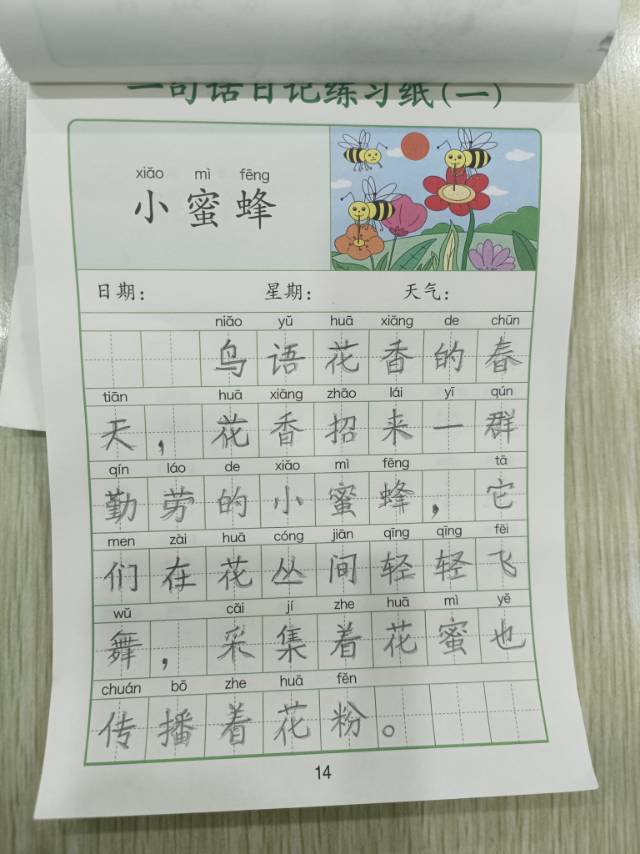 一句话日记练习纸(一)
xiǎo mì fēng
小蜜蜂
日期： 星期： 天气：
niǎo yǔ huā xiāng de chūn
鸟语花香的春
tiān huā xiāng zhāo lái yī qún
天，花香招来一群
qín láo de xiǎo mì fēng tā
勤劳的小蜜蜂，它
men zài huā cóng jiān qīng qīng fēi
们在花丛间轻轻飞
wǔ cǎi jí zhe huā mì yě
舞，采集着花蜜也
chuán bō zhe huā fěn
传播着花粉。
14